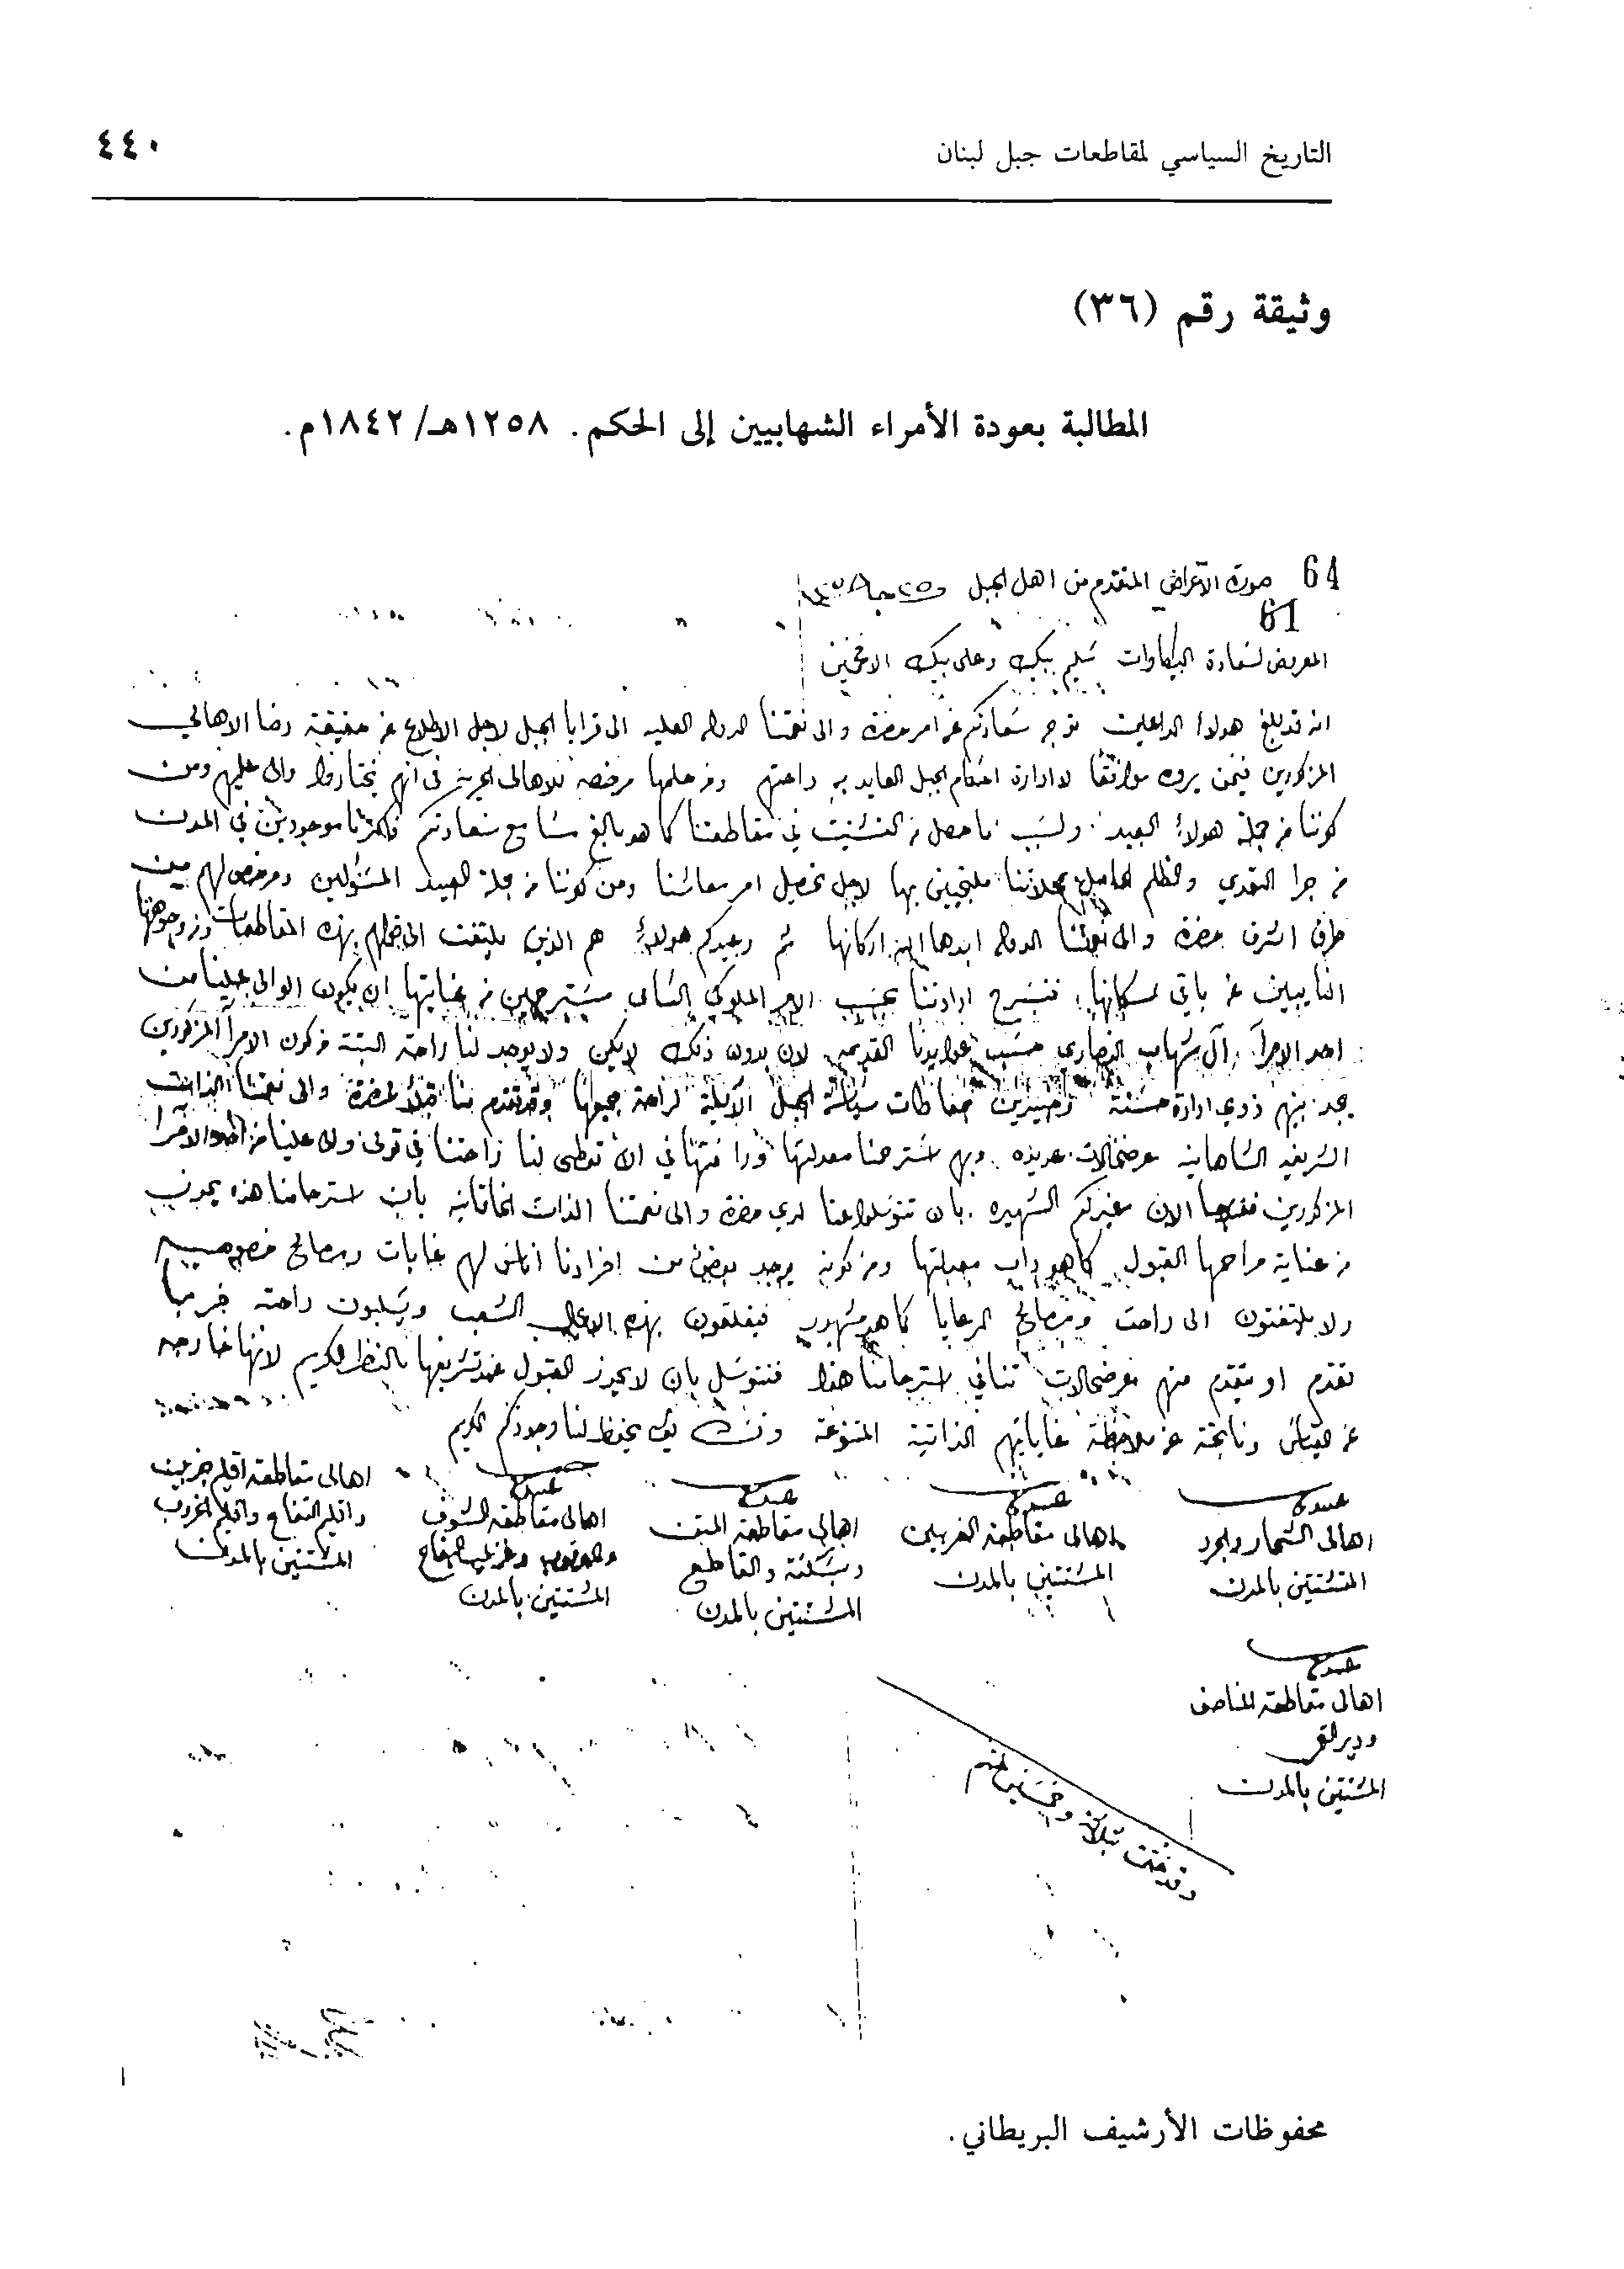 التاريخ السياسي لمقاطعات جبل لبنان
٤٤٠
وثيقة رقم (٣٦)
المطالبة بعودة الأمراء الشهابيين إلى الحكم. ١٢٥٨هـ/١٨٤٢م.
64 صورة الاعراض المتقدم من اهل الجبل
61
المعروض لسعادة البيكاوات سليم بيك وعلي بيك الافخمين
انه قد بلغ هولاء الداعيين توجه سعادتكم عن امر حضرة والى نعمتنا الدوله العليه الى قرايا الجبل لاجل الاطلاع عن حقيقة رضا الاهالي
المذكورين فيمن يروه موافقًا لادارة احكام الجبل العايد به راحتهم ومن حلمها مرخصه للاهالي الحرية في انهم يختاروا والى عليهم ومن
كوننا من جملة هولاء العبيد وبسبب ما حصل من التشتيت في مقاطعتنا كما هو بالغ مسامع سعادتكم فاكثرنا موجودين في المدن
من جرا التعدي والظلم الحاصل بمحلاتنا ملتجيين بها لاجل تحصيل امر معاشنا ومن كوننا من جملة العبيد المسئولين ومرخص لهم من
طرف اشرف حضرة والى نعمتنا الدوله ابدها الله اركانها ثم وعبيدكم هولاء هم الذين يلتفت الى بهذه المقاطعات ووجوهها
النايبين عن باقي سكانها فنشرح ارادتنا بحسب الامر الملوكي السامي مسترحمين من عنايتها ان يكون الوالي علينا من
احد الامرآ آل شهاب النصاري حسب عوايدنا القديمه لان بدون ذلك لا يمكن ولا يوجد لنا راحة البتة من كون الامرآ المذكورين
يوجد بينهم ذوي ادارة حسنة الجبل الآيلة لراحة جميعها وقد تقدم منا لحضرة والى نعمتنا الذات
الشريفه الشاهانيه عرضحالات عديده وبهم استرحمنا معدلتها ورافتها في ان تعطى لنا راحتنا في تولى والى علينا من احد الامرآ
المذكورين الان غيرتكم الشهيره بان تتوسلوا عنا لدي حضرة والى نعمتنا الذات الخاقانيه بان استرحامنا هذا يحوز
من عناية مراحمها القبول كما هو داب ومن كونه يوجد بعض من افرادنا اناس لهم غايات ومصالح خصوصيه
ولا يلتفتون الى راحت ومصالح الرعايا كما هو مشهور فيقلقون بهذه الشعب ويسلبون راحته
تقدم او يتقدم منهم عرضحالات تنافي استرحامنا هذا فنتوسل بان لا يحوز القبول عند تشريفها بالنظر الكريم لانها خارجه
عن القياس وناتجة عن ملاحظة غاياتهم الذاتية المتنوعة يحفظ لنا وجودكم الكريم
عبيدكم
اهالي الشحار والجرد
المتشتتين بالمدن
عبيدكم
اهالي مقاطعة الغربين
المشتتين بالمدن
عبيدكم
اهالي مقاطعة المتن
وبسكنتة والقاطع
المشتتين بالمدن
عبيدكم
اهالي مقاطعة الشوف
المشتتين بالمدن
اهالي مقاطعة اقليم جزين
واقليم التفاح واقليم الخروب
المشتتين بالمدن
عبيدكم
اهالي مقاطعة المناصف
ودير القمر
المشتتين بالمدن
وقد ختمت بثلاثة وخمسين ختم
محفوظات الأرشيف البريطاني.